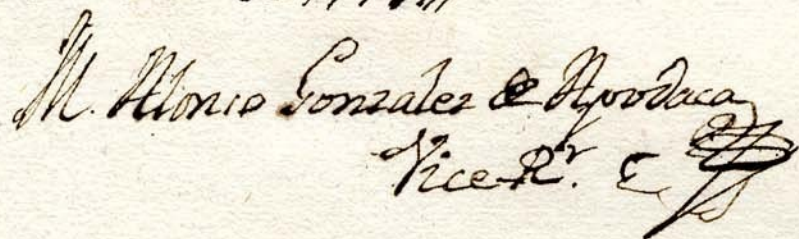 M. Alonso Gonzalez de Apodaca
Vice-Rr.